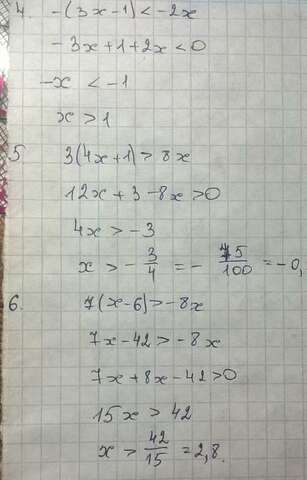 4. -(3x-1) < -2x
-3x+1+2x<0
-x < -1
x > 1
5 3(4x+1) > 8x
12x+3-8x>0
4x > -3
x > - 3/4 = - 75/100 = -0,
6. 7(x-6) > -8x
7x-42 > -8x
7x+8x-42>0
15x > 42
x > 42/15 = 2,8.